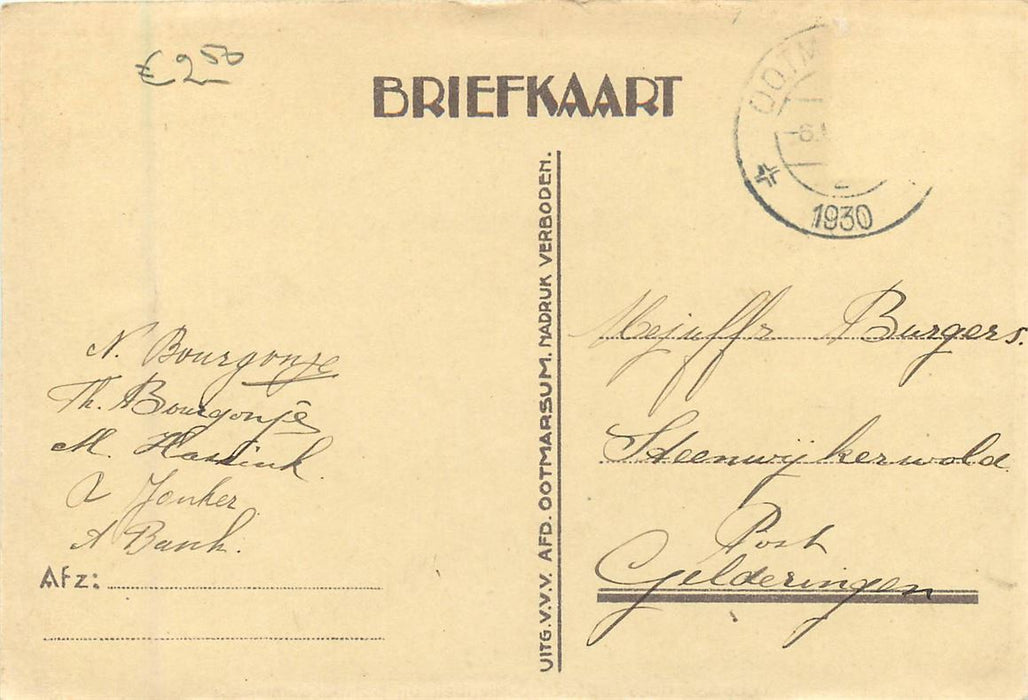 € 2,50
BRIEFKAART
OOTM
-6.
1930
UITG. V.V.V. AFD. OOTMARSUM. NADRUK VERBODEN.
N. Bourgonje
Th. Bourgonje
M. Hassink
Jonker
A Bank.
Afz:
Mejuffr Burgers.
Steenwijkerwold
Post
Gelderingen